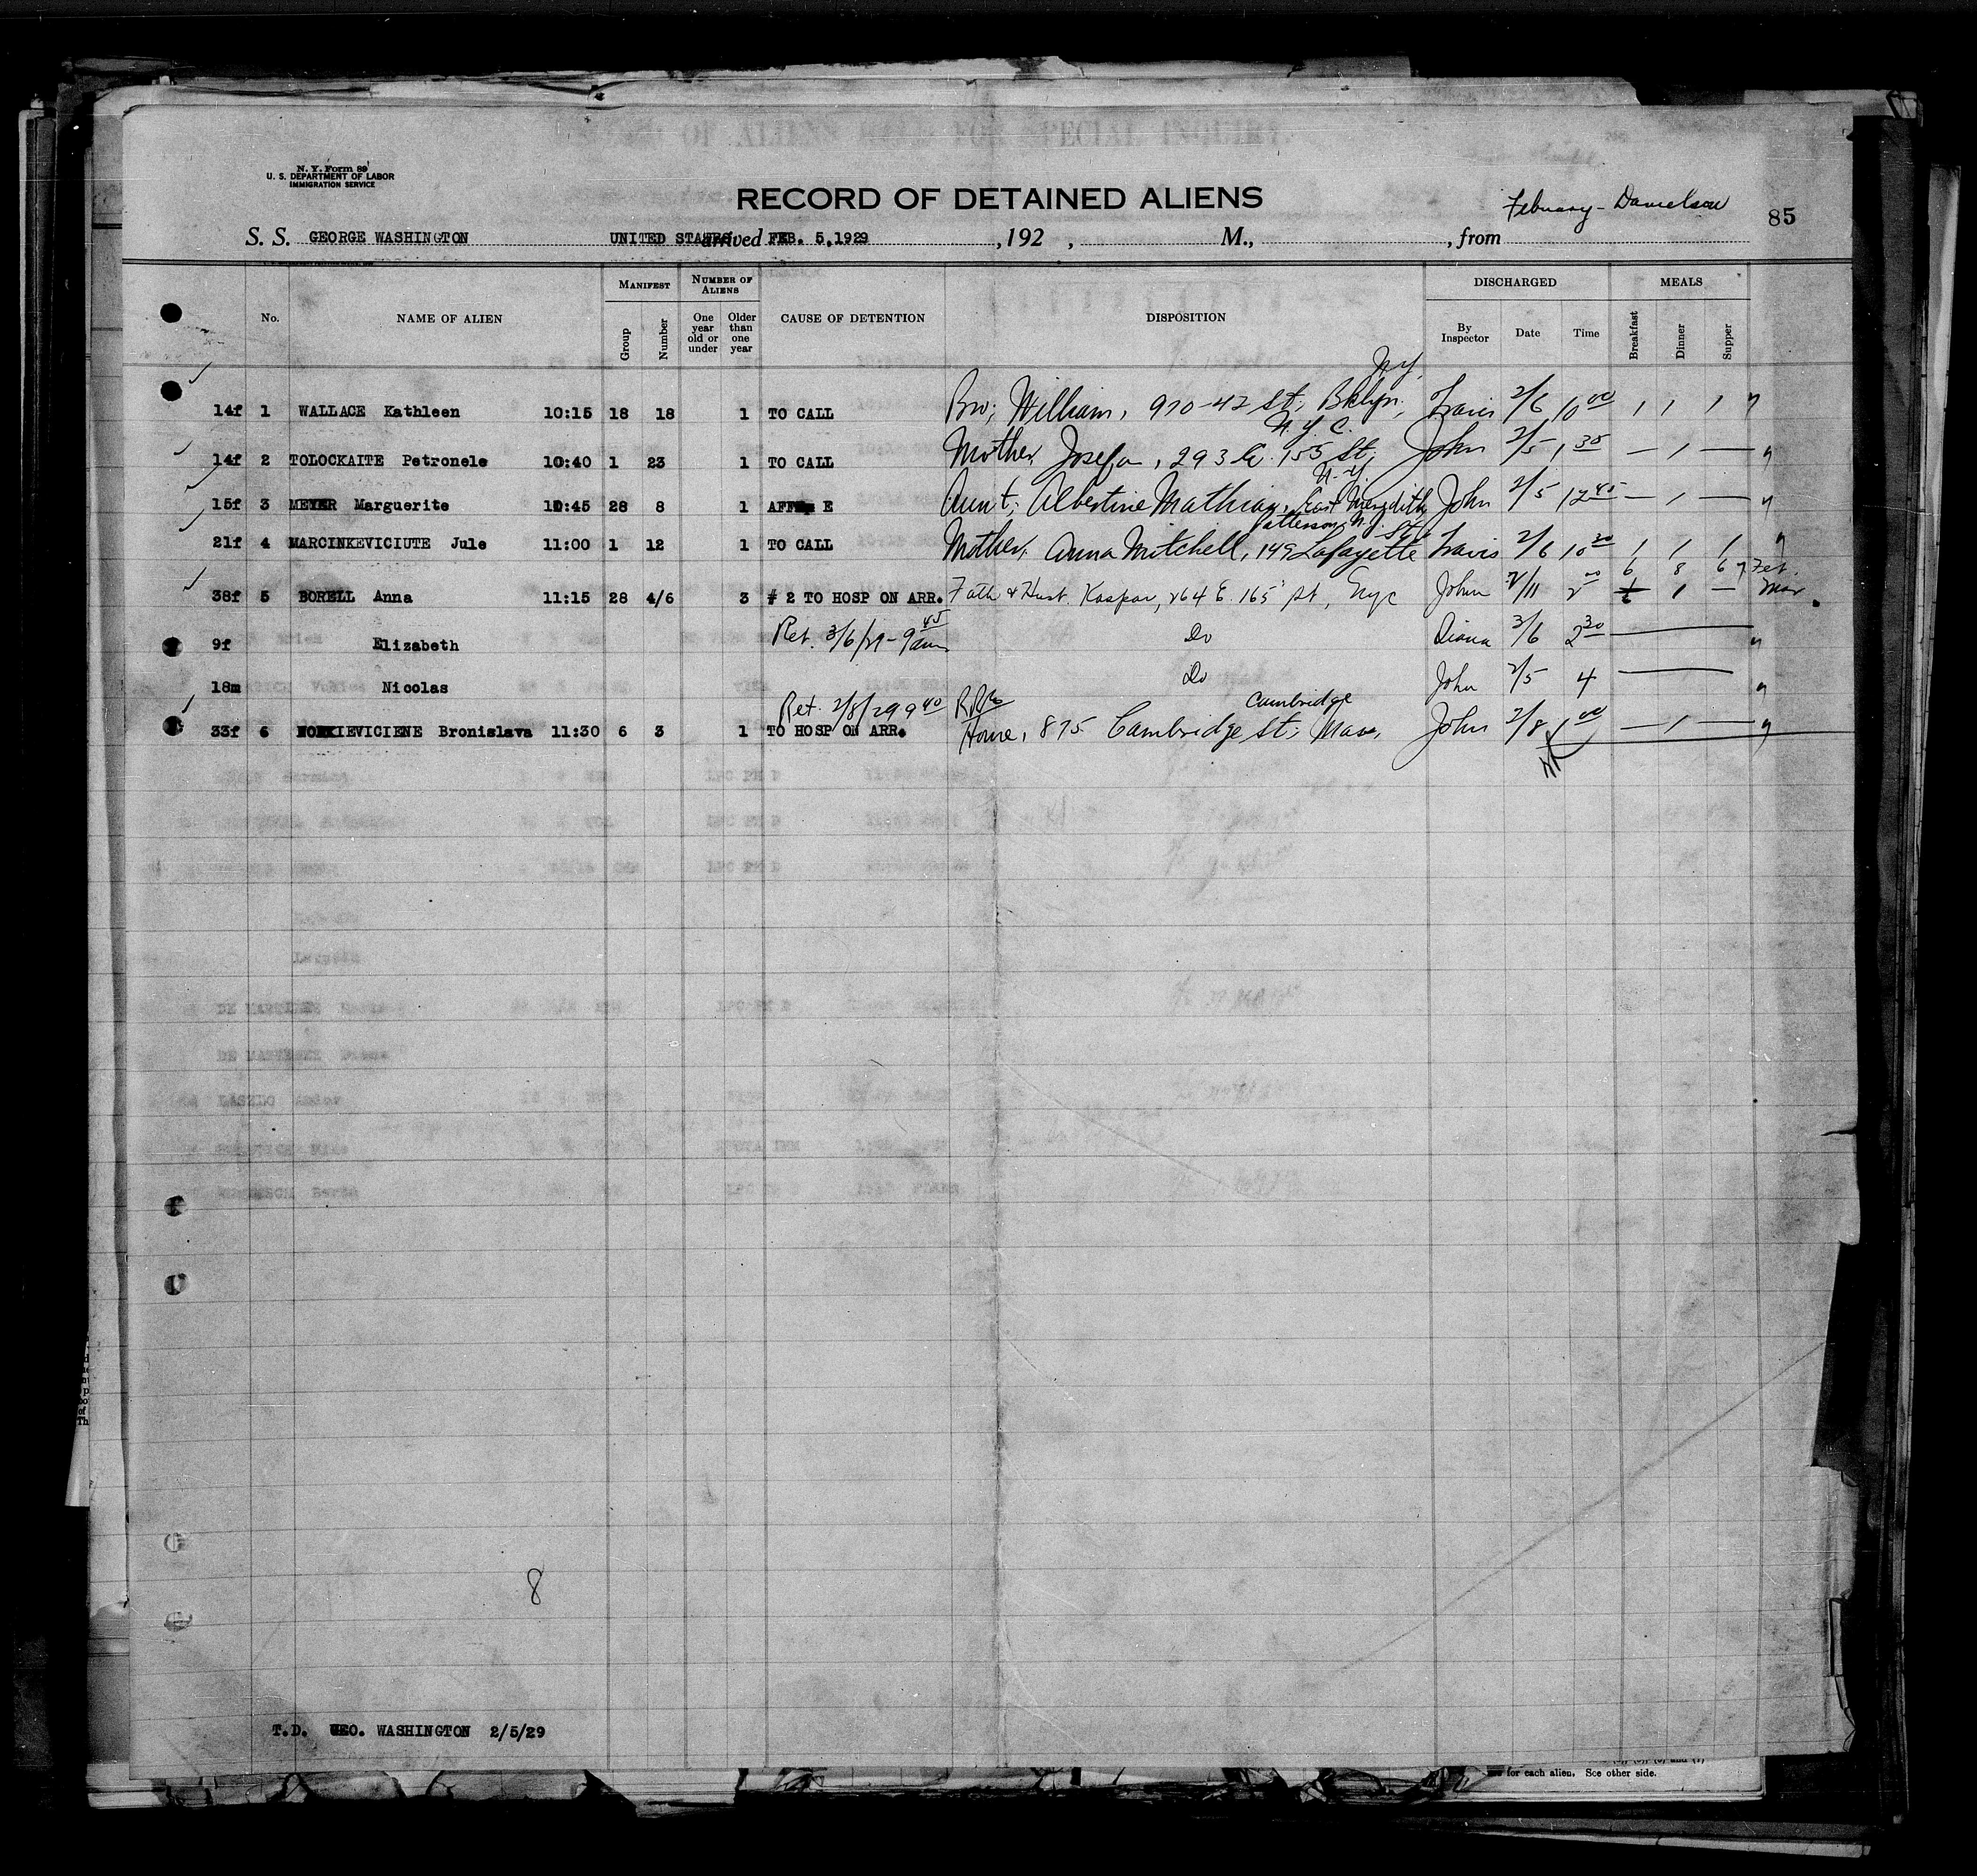 N. Y. Form 89
U. S. DEPARTMENT OF LABOR
IMMIGRATION SERVICE
RECORD OF DETAINED ALIENS
February - Danielson
85
S. S. GEORGE WASHINGTON UNITED STATES arrived FEB. 5,1929 ,192 , M., , from
No. NAME OF ALIEN MANIFEST Group Number NUMBER OF ALIENS One year old or under Older than one year CAUSE OF DETENTION DISPOSITION DISCHARGED By Inspector Date Time MEALS Breakfast Dinner Supper
N.Y.
14f 1 WALLACE Kathleen 10:15 18 18 1 TO CALL Bro; William, 970-42 St; Bklyn. Travis 2/6 10 00 1 1 1 "
N.Y.C.
14f 2 TOLOCKAITE Petronele 10:40 1 23 1 TO CALL Mother, Josefa, 293 155 St; John 2/5 1 35 — 1 — "
N.Y.
15f 3 MEYER Marguerite 10:45 28 8 1 AFF E Aunt; Albertine Mathian, East Meredith John 2/5 12 45 — 1 — "
Patterson, N.J. St;
21f 4 MARCINKEVICIUTE Jule 11:00 1 12 1 TO CALL Mother, Anna Mitchell, 149 Lafayette Travis 2/6 10 30 1 1 1 "
6 8 6 Feb.
38f 5 BORELL Anna 11:15 28 4/6 3 # 2 TO HOSP ON ARR. Fath & Husb. Kaspar, 264 E. 165 St, Nyc John 2/11 2 00 1 — Mar.
Ret. 3/6/29 - 9 45 am
9f Elizabeth Do Diana 3/6 2 30 — "
18m Nicolas Do John 2/5 4 — "
Ret. 2/8/29 9 40 Cambridge
33f 6 KIEVICIENE Bronislava 11:30 6 3 1 TO HOSP ON ARR. Home, 875 Cambridge St; Mass. John 2/8 1 00 — 1 — "
8
T.D. GEO. WASHINGTON 2/5/29
for each alien. See other side.